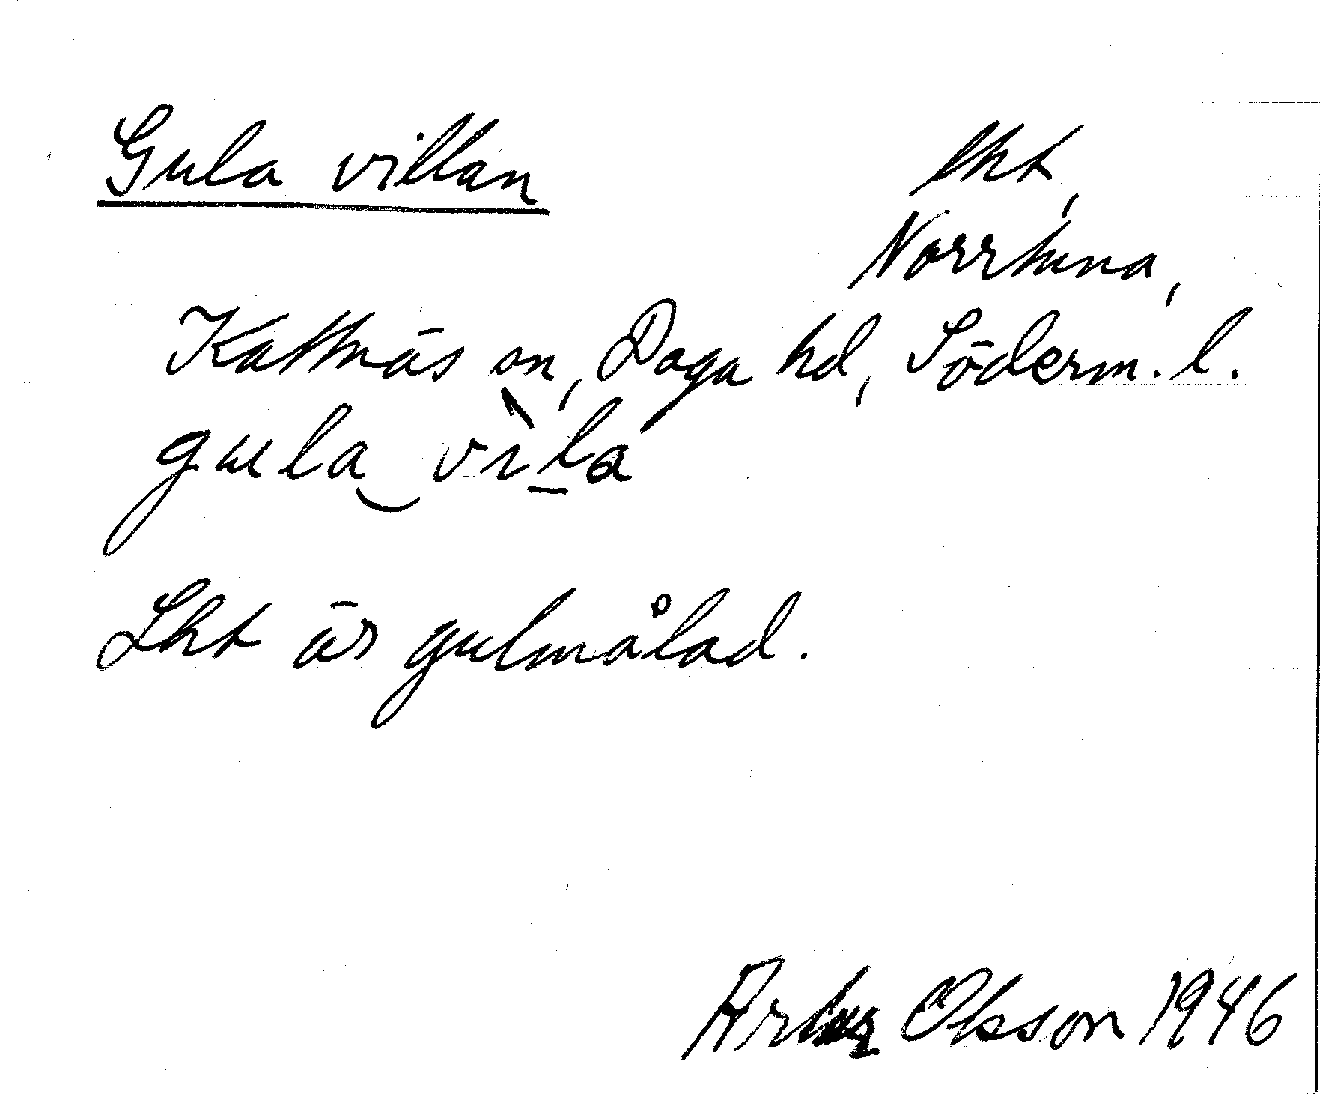 Gula villan lht,
Norrtuna,
Kattnäs sn, Daga hd, Söderm. l.
gula‿vìla
Lht är gulmålad.
Artur Olsson 1946